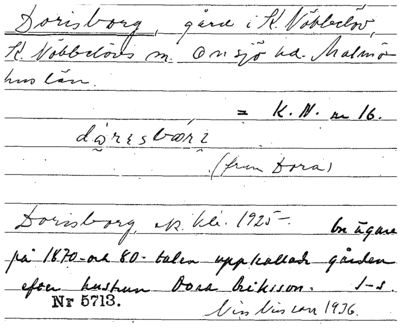 Dorisborg, gård i K. Nöbbelöv,
K. Nöbbelövs sn. Onsjö hd. Malmö-
hus län.
= K. N. nr 16.
(från Dora)
Dorisborg, ek. kb. 1925-. En ägare
på 1870- och 80-talen uppkallade gården
efter hustrun Dora Eriksson. S-s.
Nr 5713.
1936.